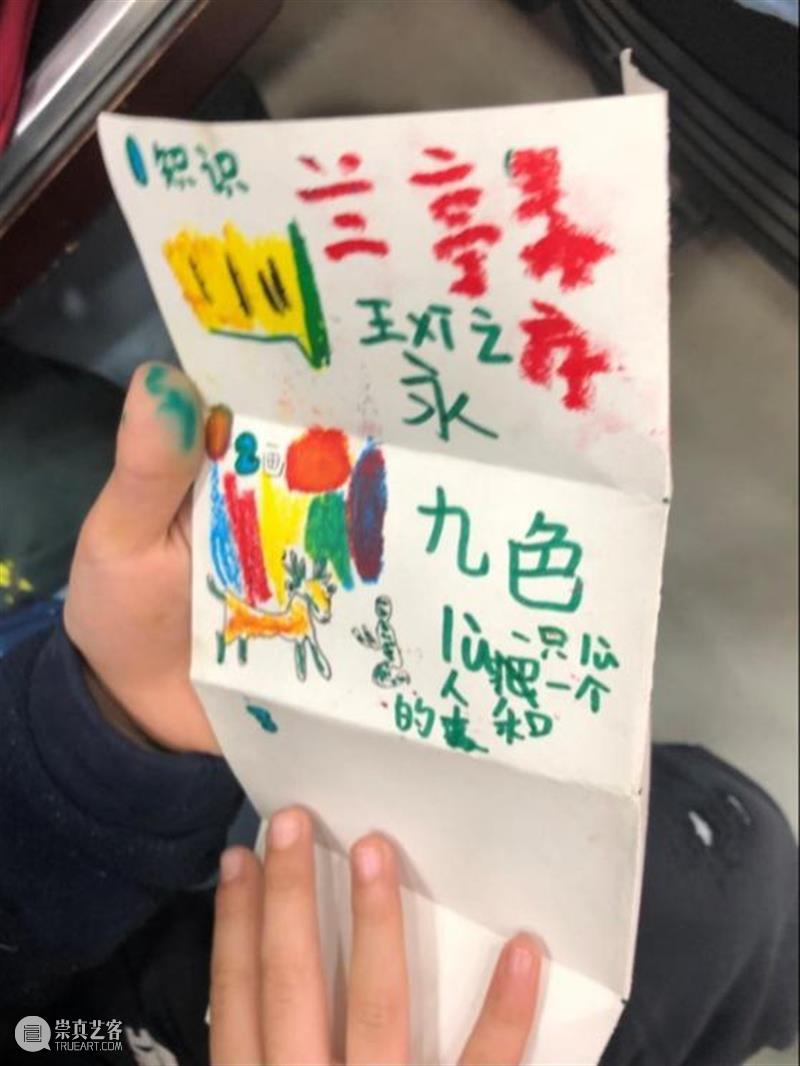 1 知识
兰亭 序
王xī之
永
2 画
九色
lù 一只lù
一个
人 和
的
崇真艺客
TRUEART.COM